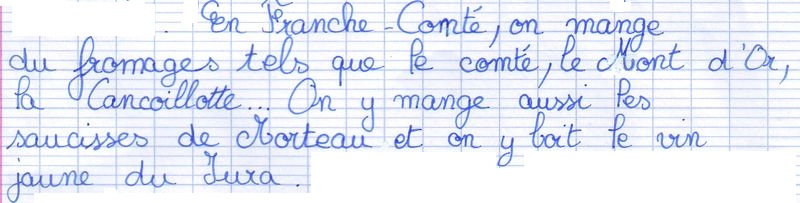 En Franche-Comté, on mange
du fromages tels que le comté, le Mont d'Or,
la Cancoillotte... On y mange aussi les
saucisses de Morteau et on y boit le vin
jaune du Jura.